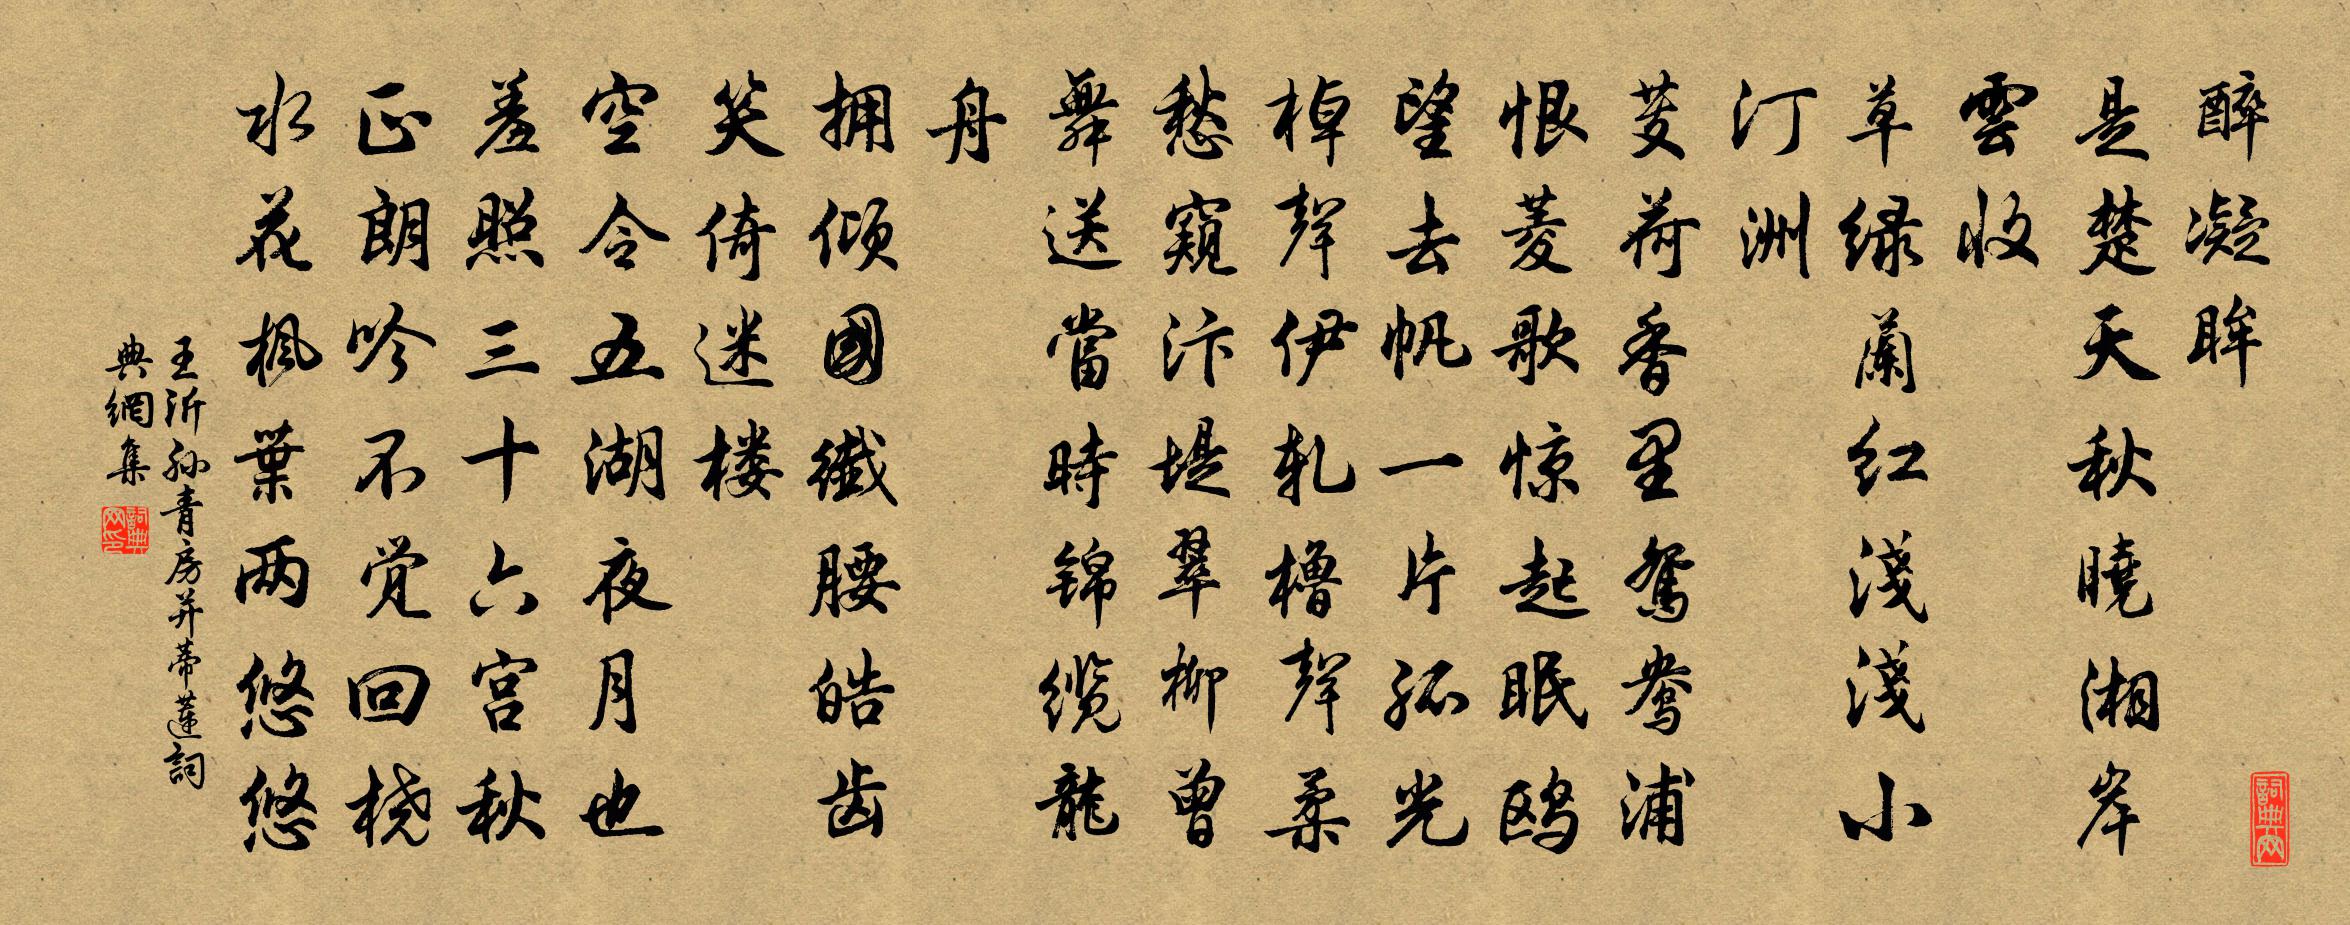 醉凝眸
是楚天秋曉湘岸
雲收
草绿蘭红淺淺小
汀洲
芰荷香里鴛鴦浦
恨菱歌惊起眠鸥
望去帆一片孤光
棹聲伊轧橹聲柔
愁窺汴堤翠柳曾
舞送當時锦缆龍
舟
拥倾國纖腰皓齿
笑倚迷楼
空令五湖夜月也
羞照三十六宫秋
正朗吟不觉回桡
水花楓葉两悠悠
王沂孙青房并蒂蓮詞
典網集
詞典网印
詞典网